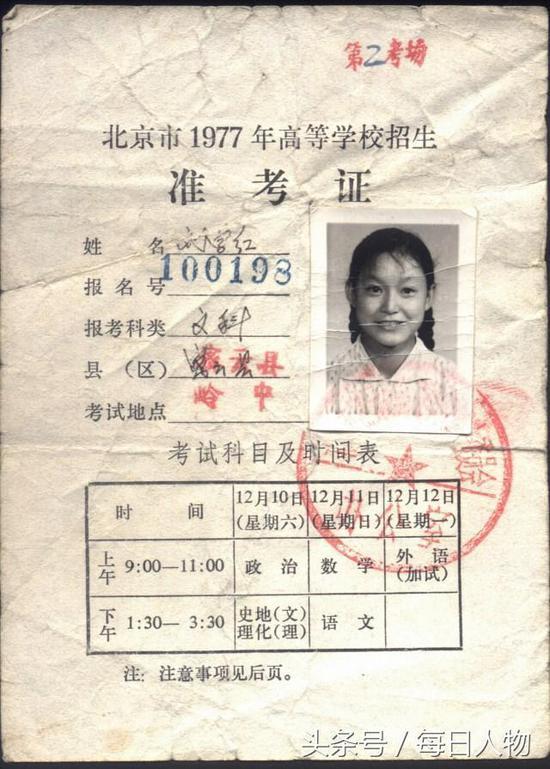 第2考场
北京市1977年高等学校招生
准考证
姓 名 刘学红
报名号 100198
报考科类 文科
县（区） 密云县 密云县
考试地点 岭中
考试科目及时间表
时 间 12月10日(星期六) 12月11日(星期日) 12月12日(星期一)
上午 9:00—11:00 政治 数学 外语(加试)
下午 1:30—3:30 史地(文)理化(理) 语文
注：注意事项见后页。
头条号 / 每日人物